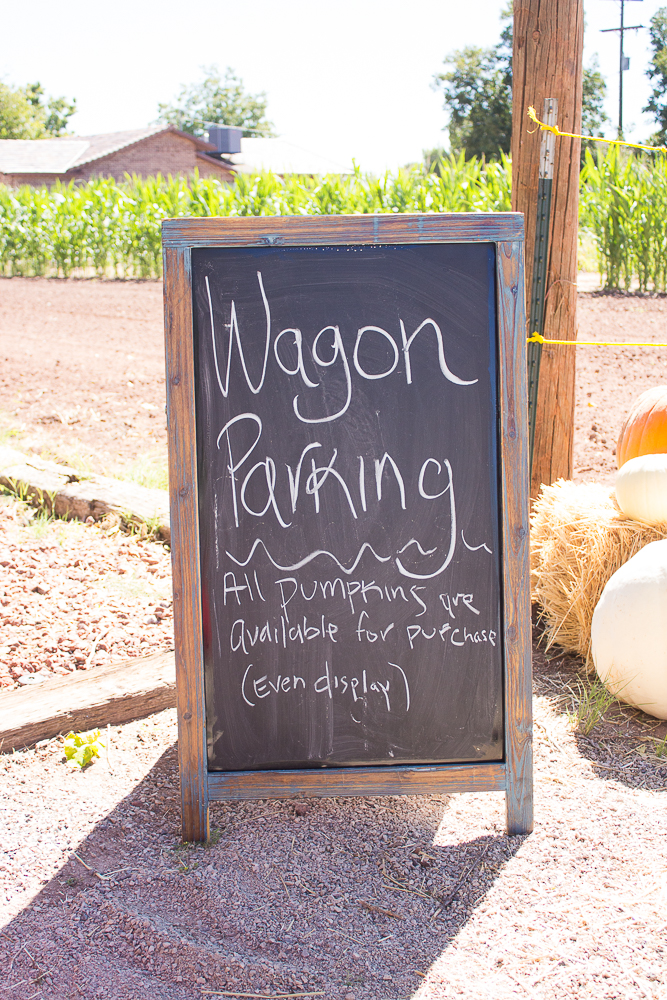 Wagon
Parking
All pumpkins are
available for purchase
(Even display)